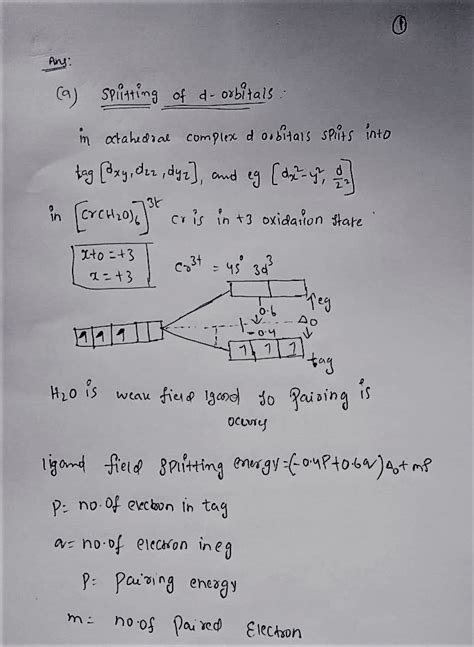 ①
Ans:
(a) splitting of d-orbitals :
in octahedral complex d orbitals splits into
t2g [dxy, dzz, dyz], and eg [dx²-y², d z²]
in [Cr(H2O)6]3+ Cr is in +3 oxidation state
x+0 = +3
x = +3
Cr3+ = 4s° 3d3
eg
0.6
Δ0
-0.4
1 1 1
1 1 1
t2g
H2O is weak field ligand so Pairing is
occurs
ligand field splitting energy = (-0.4P+0.6q)Δ0+mP
P= no.of electron in t2g
q= no.of electron in eg
P= Pairing energy
m= no.of Paired Electron